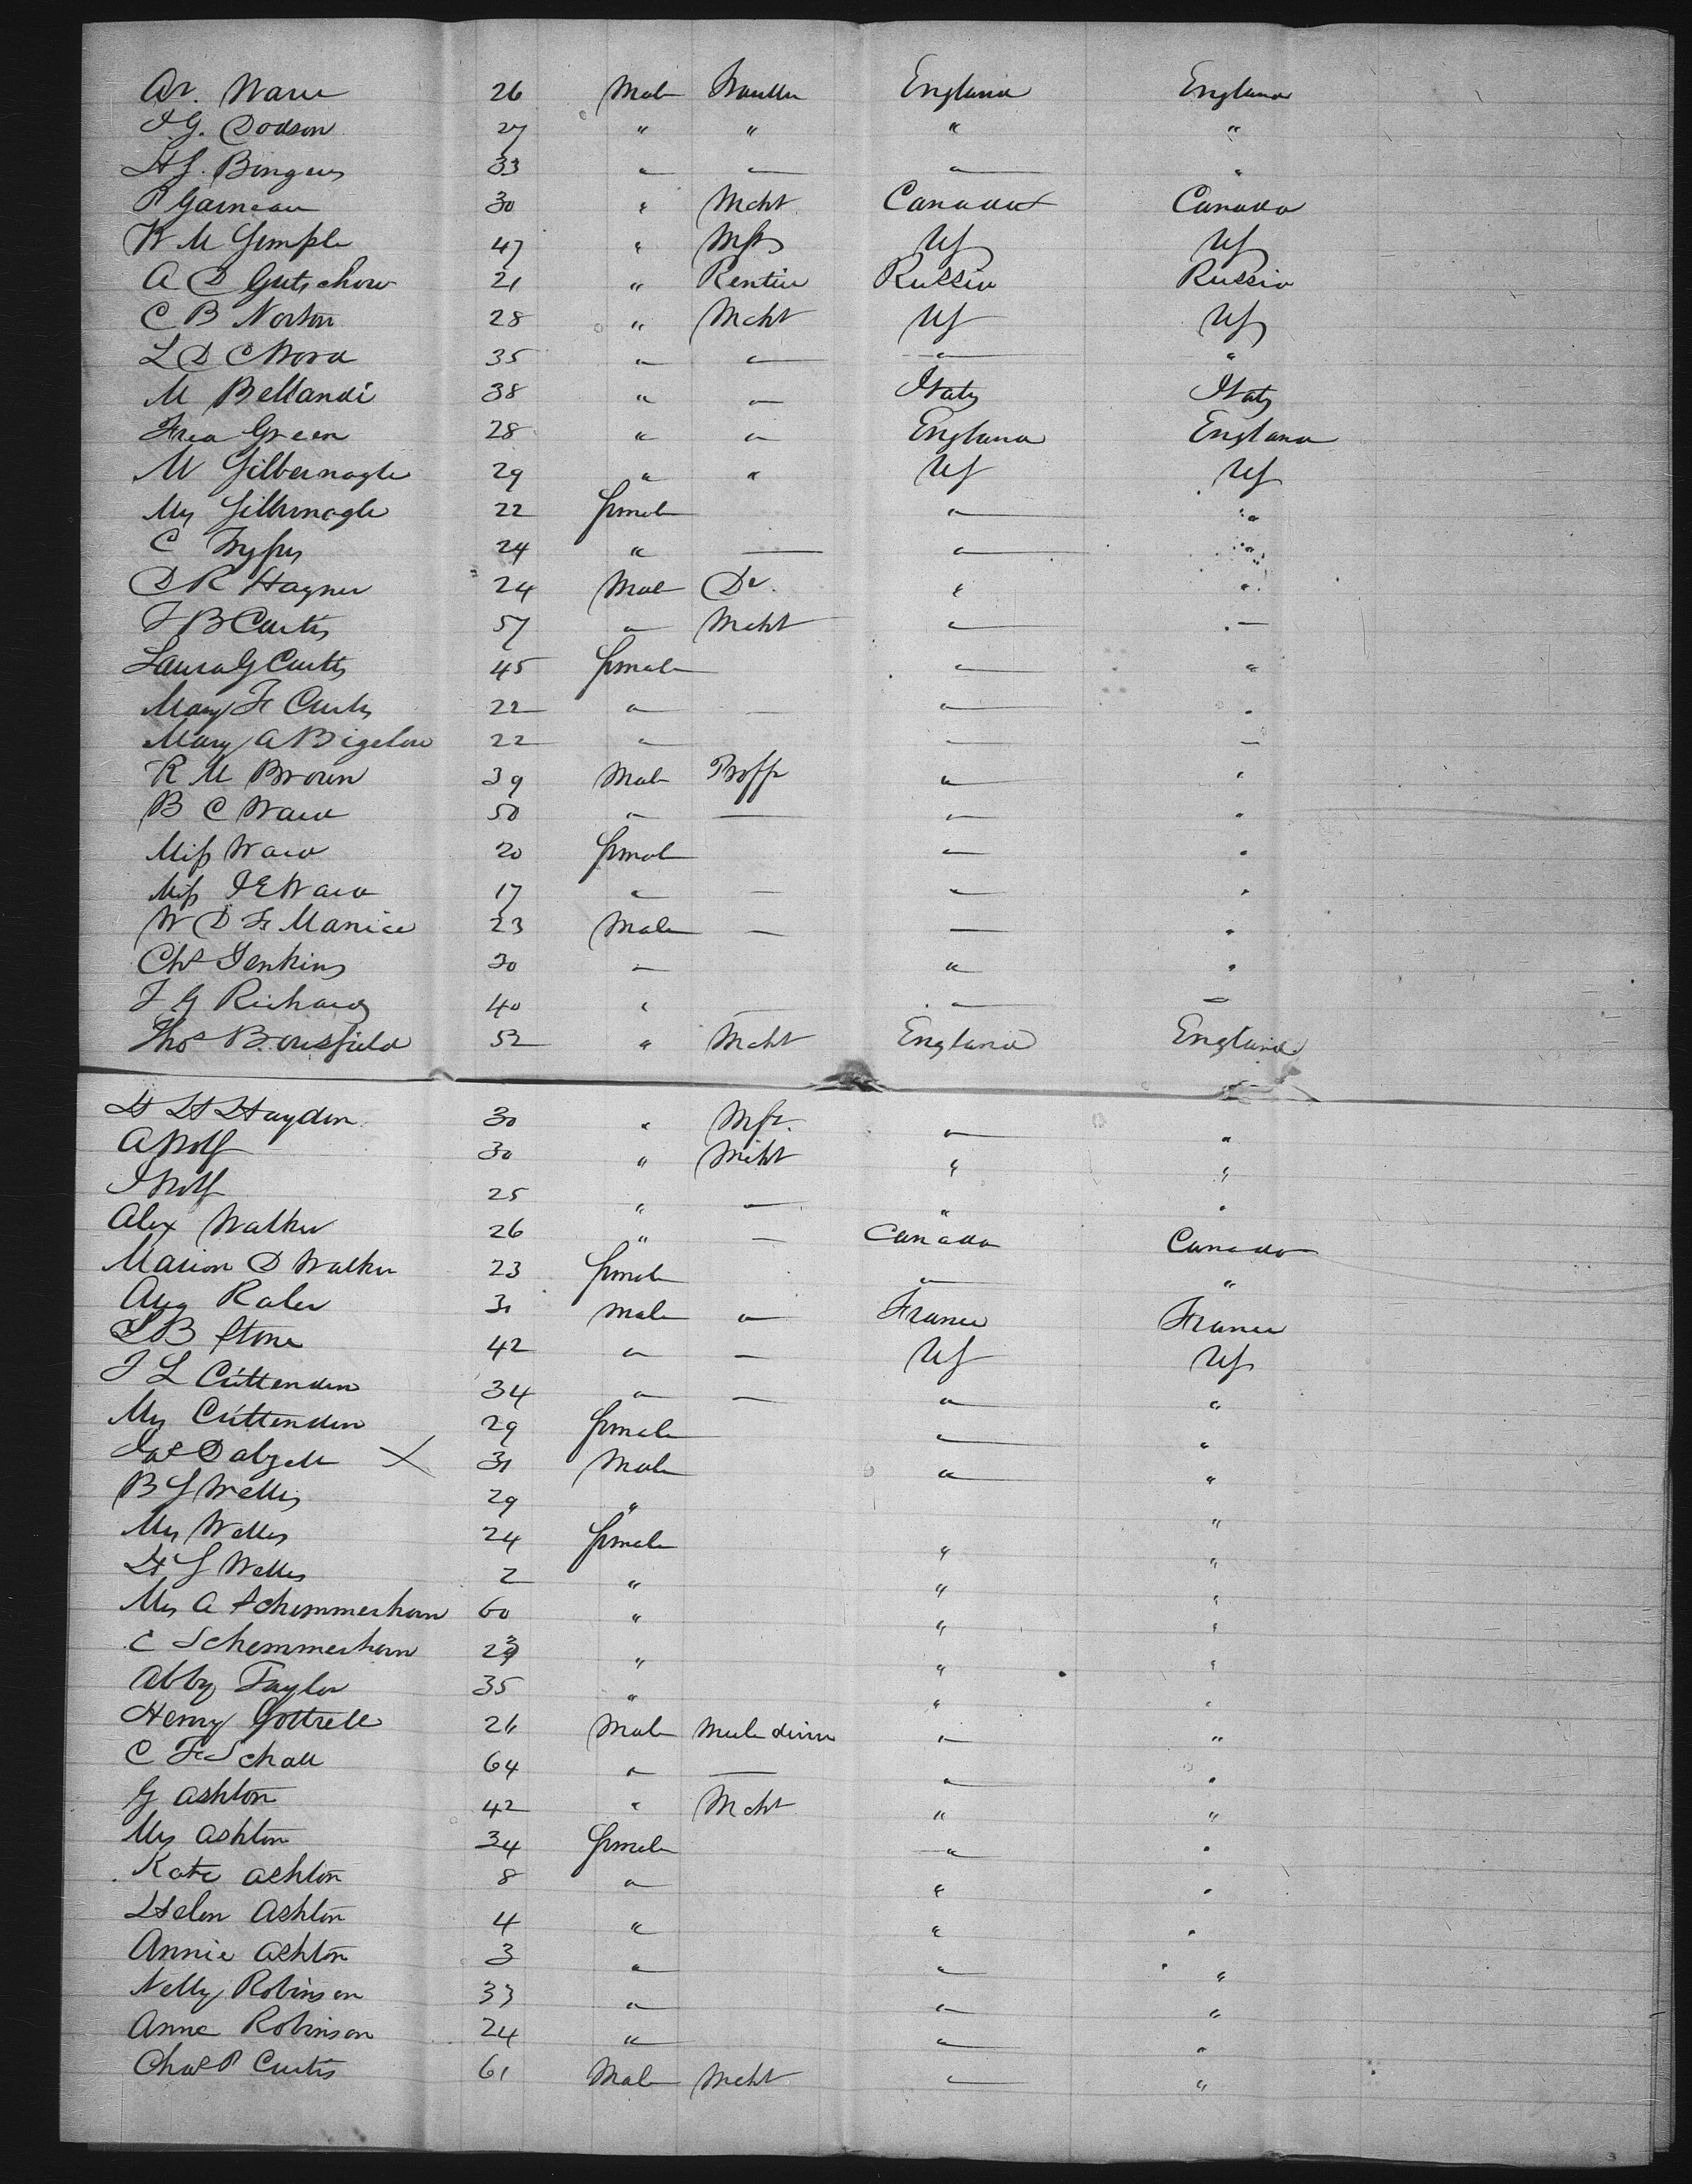 26 Male England England
I G. Dodson 27 " " " "
33 " " " "
P Garneau 30 " Mcht Canada Canada
47 " Mfr US US
A D Gutschow 21 " Rentier Russia Russia
C B Norton 28 " Mcht US US
L D C Wood 35 " " " "
M Bellandi 38 " " Italy Italy
Fred Green 28 " " England England
M Silbernagle 29 " " US US
Mrs Silbernagle 22 female " "
C 24 " — " "
D R Hagner 24 Male Dr. " "
J B Curtis 57 " Mcht " "
Laura G Curtis 45 female " "
Mary F Curtis 22 " — " "
Mary A Bigelow 22 " " "
R M Brown 39 Male Proffr " "
B C Ward 50 " — " "
Miss Ward 20 female " "
Miss I E Ward 17 " — " "
W D F Manice 23 Male — — "
Chs Jenkins 30 " " "
J G Richards 40 " — " "
Thos Bousfield 52 " Mcht England England
H H Hayden 30 " Mfr. " "
A Wolf 30 " Mcht " "
I Wolf 25 " " " "
Alex Walker 26 " — Canada Canada
Marion D Walker 23 female " "
Aug 31 male " France France
L B Stone 42 " — US US
J L Crittenden 34 " — " "
Mrs Crittenden 29 female " "
Jas Dalzell X 31 Male " "
B S Welles 29 " "
Mrs Welles 24 female " "
H S Welles 2 " " "
Mrs A Schemmerhorn 60 " " "
C Schemmerhorn " " "
Abby Taylor 35 " " "
Henry Gottrell Male " "
C F Schall 64 " — " "
G Ashton 42 " Mcht " "
Mrs Ashton 34 female " "
Kate Ashton 8 " " "
Helen Ashton 4 " " "
Annie Ashton 3 " " "
Nelly Robinson 33 " " "
Anne Robinson 24 " " "
Chas P Curtis 61 Male Mcht " "